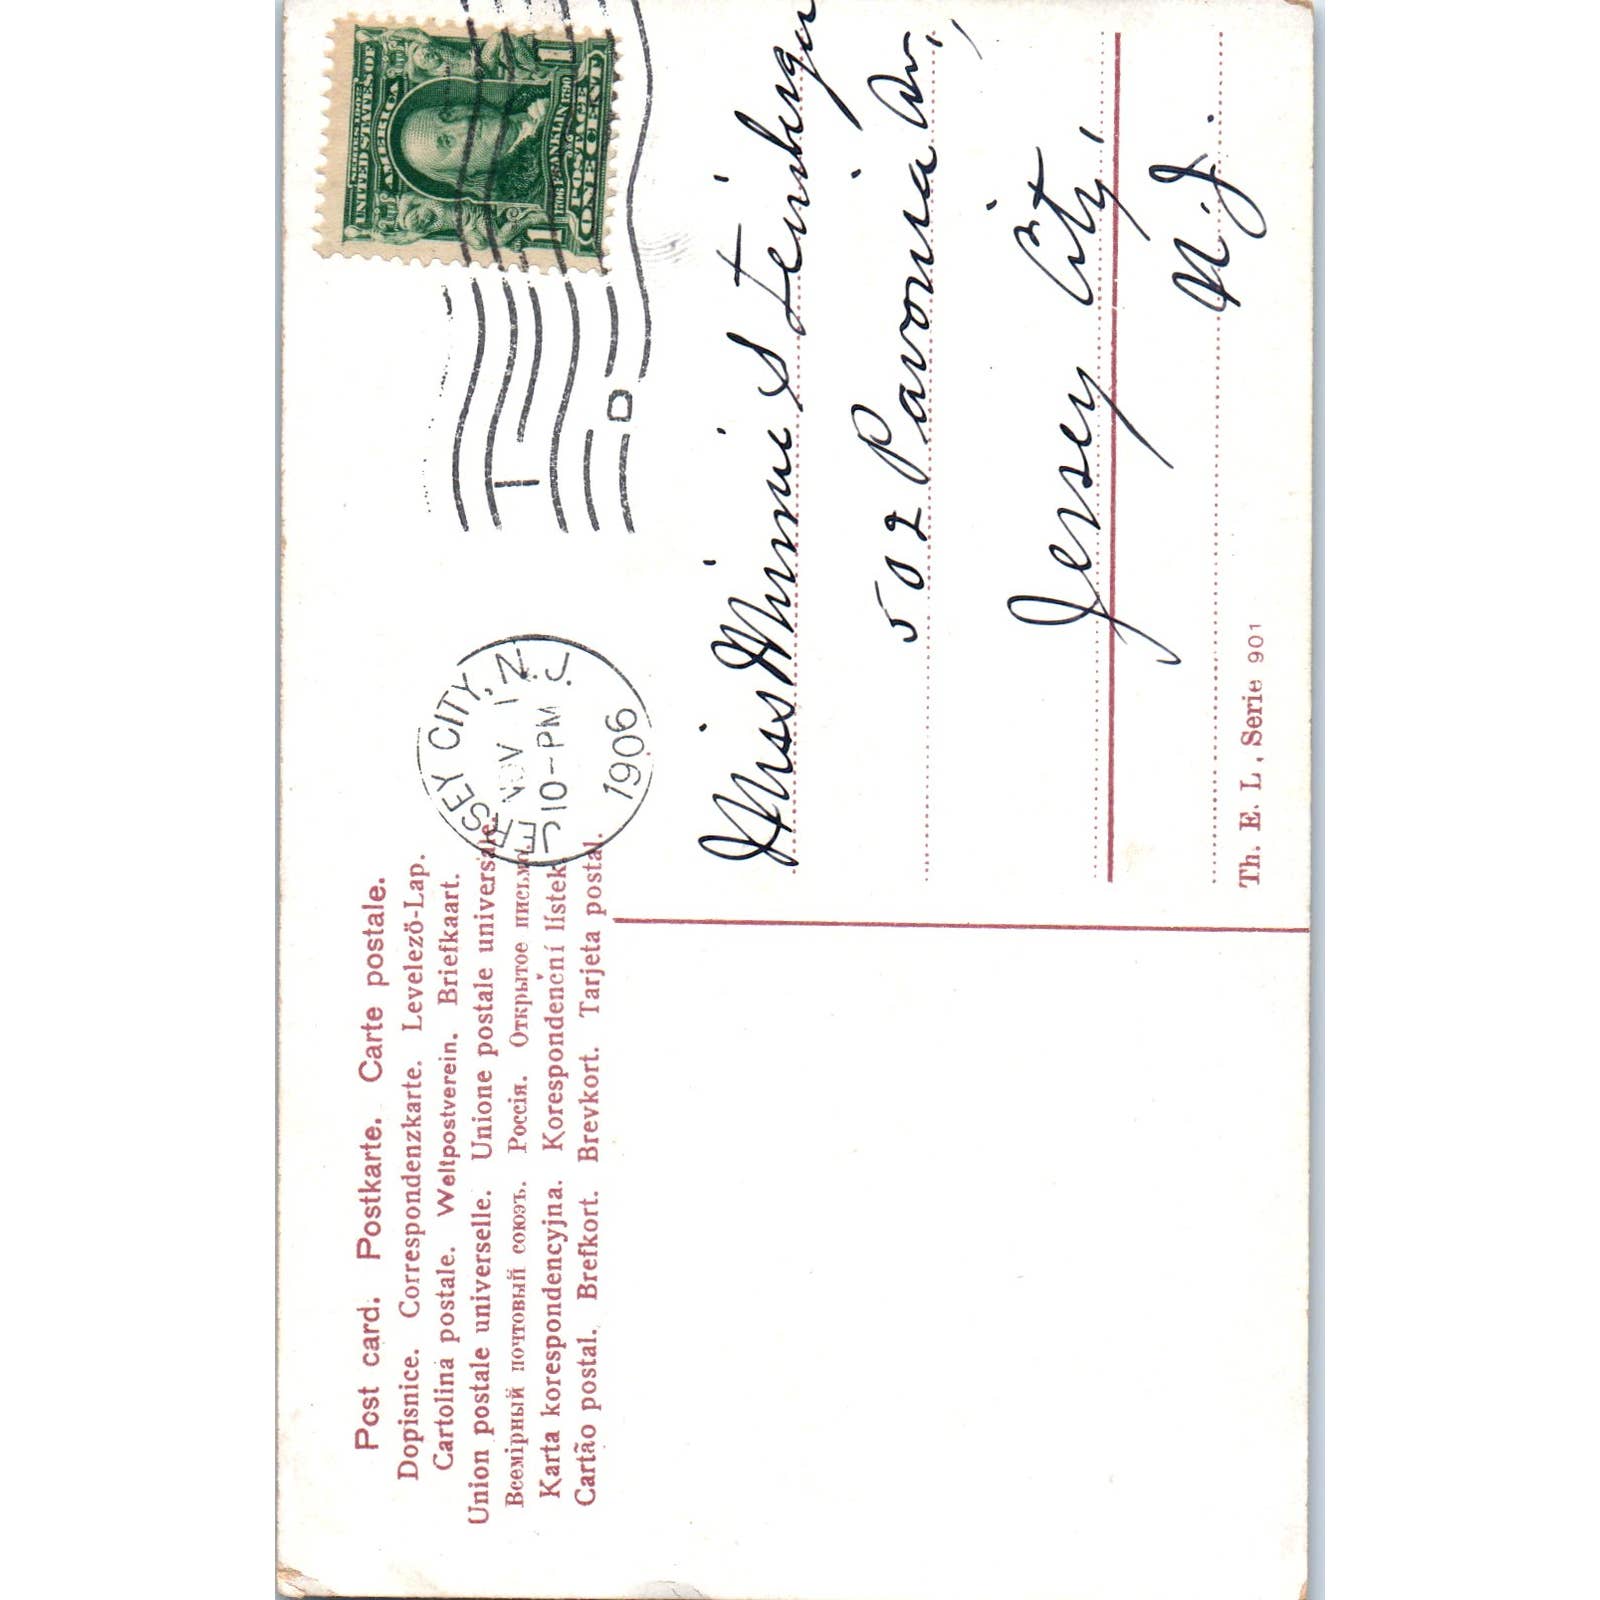 Post card. Postkarte. Carte postale.
Dopisnice. Correspondenzkarte. Levelezö-Lap.
Cartolina postale. Weltpostverein. Briefkaart.
Union postale universelle. Unione postale universale.
Всемірный почтовый союзъ. Россія. Открытое письмо.
Karta korespondencyjna. Korespondenční lístek
Cartão postal. Brefkort. Brevkort. Tarjeta postal.
JERSEY CITY, N.J.
NOV 1
10-PM
1906
T D
UNITED STATES OF
AMERICA
1706 FRANKLIN 1790
POSTAGE
1 ONE CENT 1
Miss Minnie Steinberger
502 Pavonia Av.,
Jersey City,
N.J.
Th. E. L, Serie 901